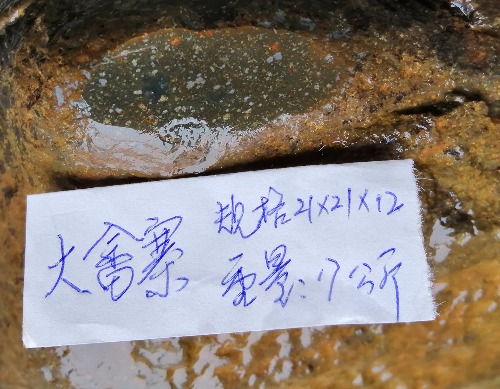 大畬寨
规格21×21×12
重量:17公斤